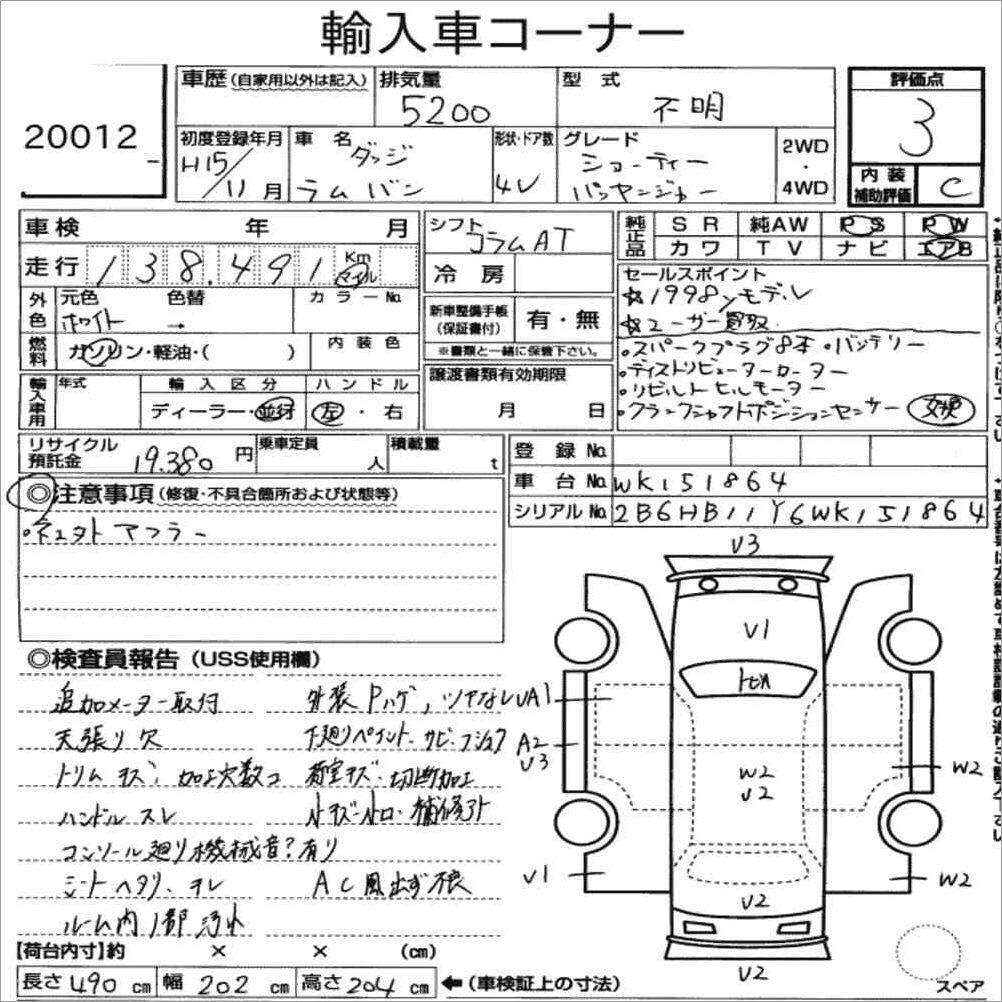 輸入車コーナー
20012
車歴(自家用以外は記入)
排気量
5200
型式
不明
評価点
3
初度登録年月
H15/11月
車名
ダッジ
ラムバン
形状・ドア数
4V
グレード
ショーティー
パッセンジャー
2WD
・
4WD
内装
補助評価
C
車検 年 月
シフト
コラムAT
純正品
SR 純AW PS PW
カワ TV ナビ エアB
走行 138,491 Km マイル
冷房
セールスポイント
☆1998yモデル
☆ユーザー買取
・スパークプラグ8本 ・バッテリー
・ディストリビューターローター
・リビルトセルモーター
・クランクシャフトポジションセンサー 交換
外色
元色 色替 カラーNo.
ホワイト →
新車整備手帳
(保証書付)
有・無
※書類と一緒に保管下さい。
燃料
ガソリン・軽油・( )
内装色
輸入車用
年式
輸入区分
ハンドル
ディーラー・並行
左・右
譲渡書類有効期限
月 日
リサイクル
預託金
19,380円
乗車定員
人
積載量
t
登録No.
車台No. WK151864
シリアルNo. 2B6HB11Y6WK151864
◎注意事項(修復・不具合箇所および状態等)
マフラー
◎検査員報告(USS使用欄)
追加メーター取付
外装Pハゲ,ツヤなし
天張り欠
下廻りペイント、サビ、
トリムキズ、加工穴数コ
荷室キズ・切断加工
ハンドルスレ
小キズ・小凹・補修跡
コンソール廻り機械音?有り
シートヘタリ、
AC風出ず不良
ルーム内1部汚れ
V3
V1
UA1
A2
V3
W2
V2
W2
V1
W2
V2
V2
【荷台内寸】約 × × (cm)
長さ490cm 幅202cm 高さ204cm ←(車検証上の寸法)
スペア